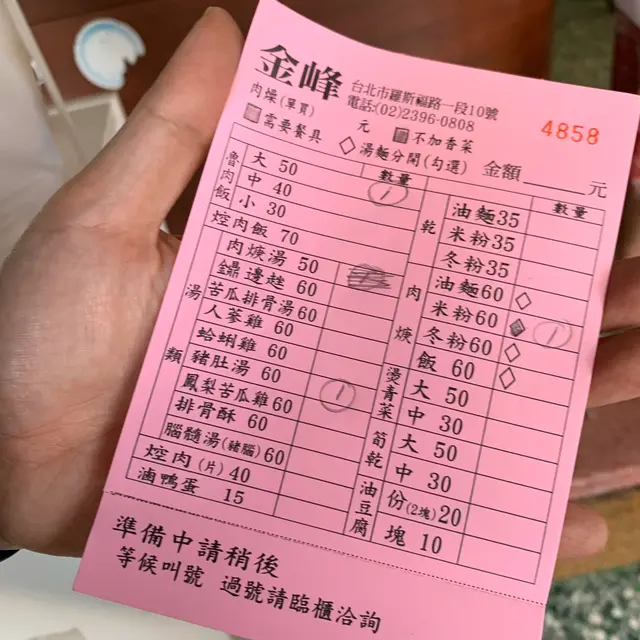 金峰
台北市羅斯福路一段10號
電話:(02)2396-0808
4858
肉燥(單買) 元
不加香菜
需要餐具
湯麵分開(勾選)
金額 元
數量
魯肉飯
大 50
中 40 1
小 30
焢肉飯 70
湯類
肉羹湯 50
鱸邊趖 60
苦瓜排骨湯60
人蔘雞 60
蛤蜊雞 60
豬肚湯 60
鳳梨苦瓜雞60 1
排骨酥 60
腦髓湯(豬腦)60
焢肉(片) 40
滷鴨蛋 15
數量
乾
油麵35
米粉35
冬粉35
肉羹
油麵60
米粉60 1
冬粉60
飯 60
燙青菜
大 50
中 30
筍乾
大 50
中 30
油豆腐
份(2塊)20
塊 10
準備中請稍後
等候叫號 過號請臨櫃洽詢